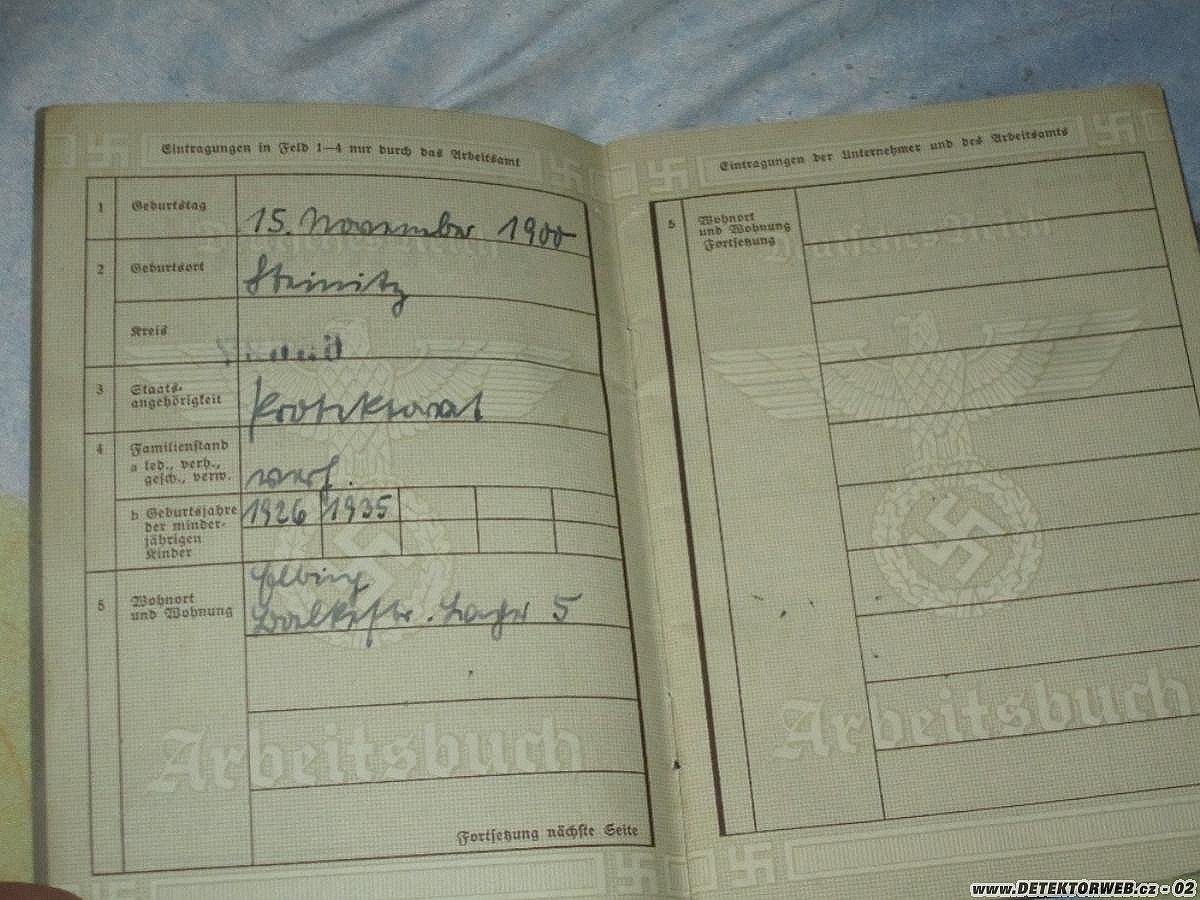 Eintragungen in Feld 1—4 nur durch das Arbeitsamt
1 Geburtstag 15. November 1900
2 Geburtsort Steinitz
Kreis
3 Staats-
angehörigkeit Protektorat
4 Familienstand
a led., verh.,
gesch., verw. verh.
b Geburtsjahre 1926 1935
der minder-
jährigen
Kinder
5 Wohnort Elbing
und Wohnung Lager 5
Arbeitsbuch
Fortsetzung nächste Seite
Eintragungen der Unternehmer und des Arbeitsamts
5 Wohnort
und Wohnung
Fortsetzung
Deutsches Reich
Arbeitsbuch
www.DETEKTORWEB.cz - 02